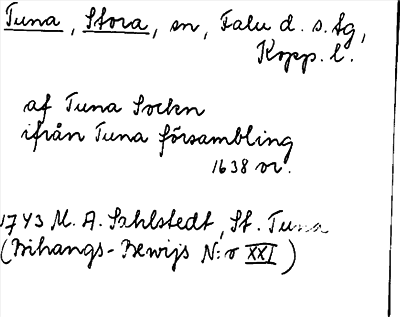 Tuna, Stora, sn, Falu d. s. fg,
Kopp. l.
af Tuna Sockn
ifrån Tuna försambling
1638 or.
1743 M. A. Sahlstedt, St. Tuna
(Bihangs-Bewijs N:o XXI)